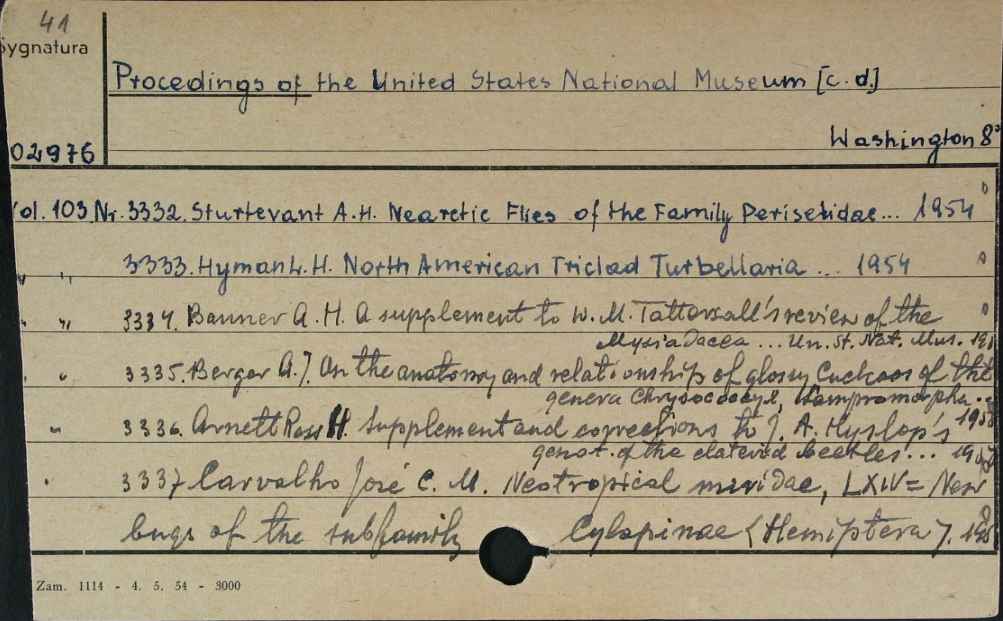 41
Sygnatura
Procedings of the United States National Museum [c.d.]
Washington 8°
02976
Vol. 103 Nr. 3332. Sturtevant A.H. Nearctic Flies of the Family Periscelidae... 1954
" " 3333. Hyman L.H. North American Triclad Turbellaria ... 1954
" " 3334. Banner A.H. A supplement to W.M. Tattersall's review of the
Mysidacea ... Un. St. Nat. Mus.
" " 3335. Berger A.J. On the anatomy and relationship of glossy Cuckoos of the
genera Chrysococcyx, Lampromorpha
" 3336. Arnett Ross H. Supplement and corrections to J. A. Hyslop's
genot. of the elaterid beetles...
" 3337 Carvalho José C. M. Neotropical miridae, LXIV = New
bugs of the subfamily Cylapinae (Hemiptera).
Zam. 1114 - 4. 5. 54 - 3000